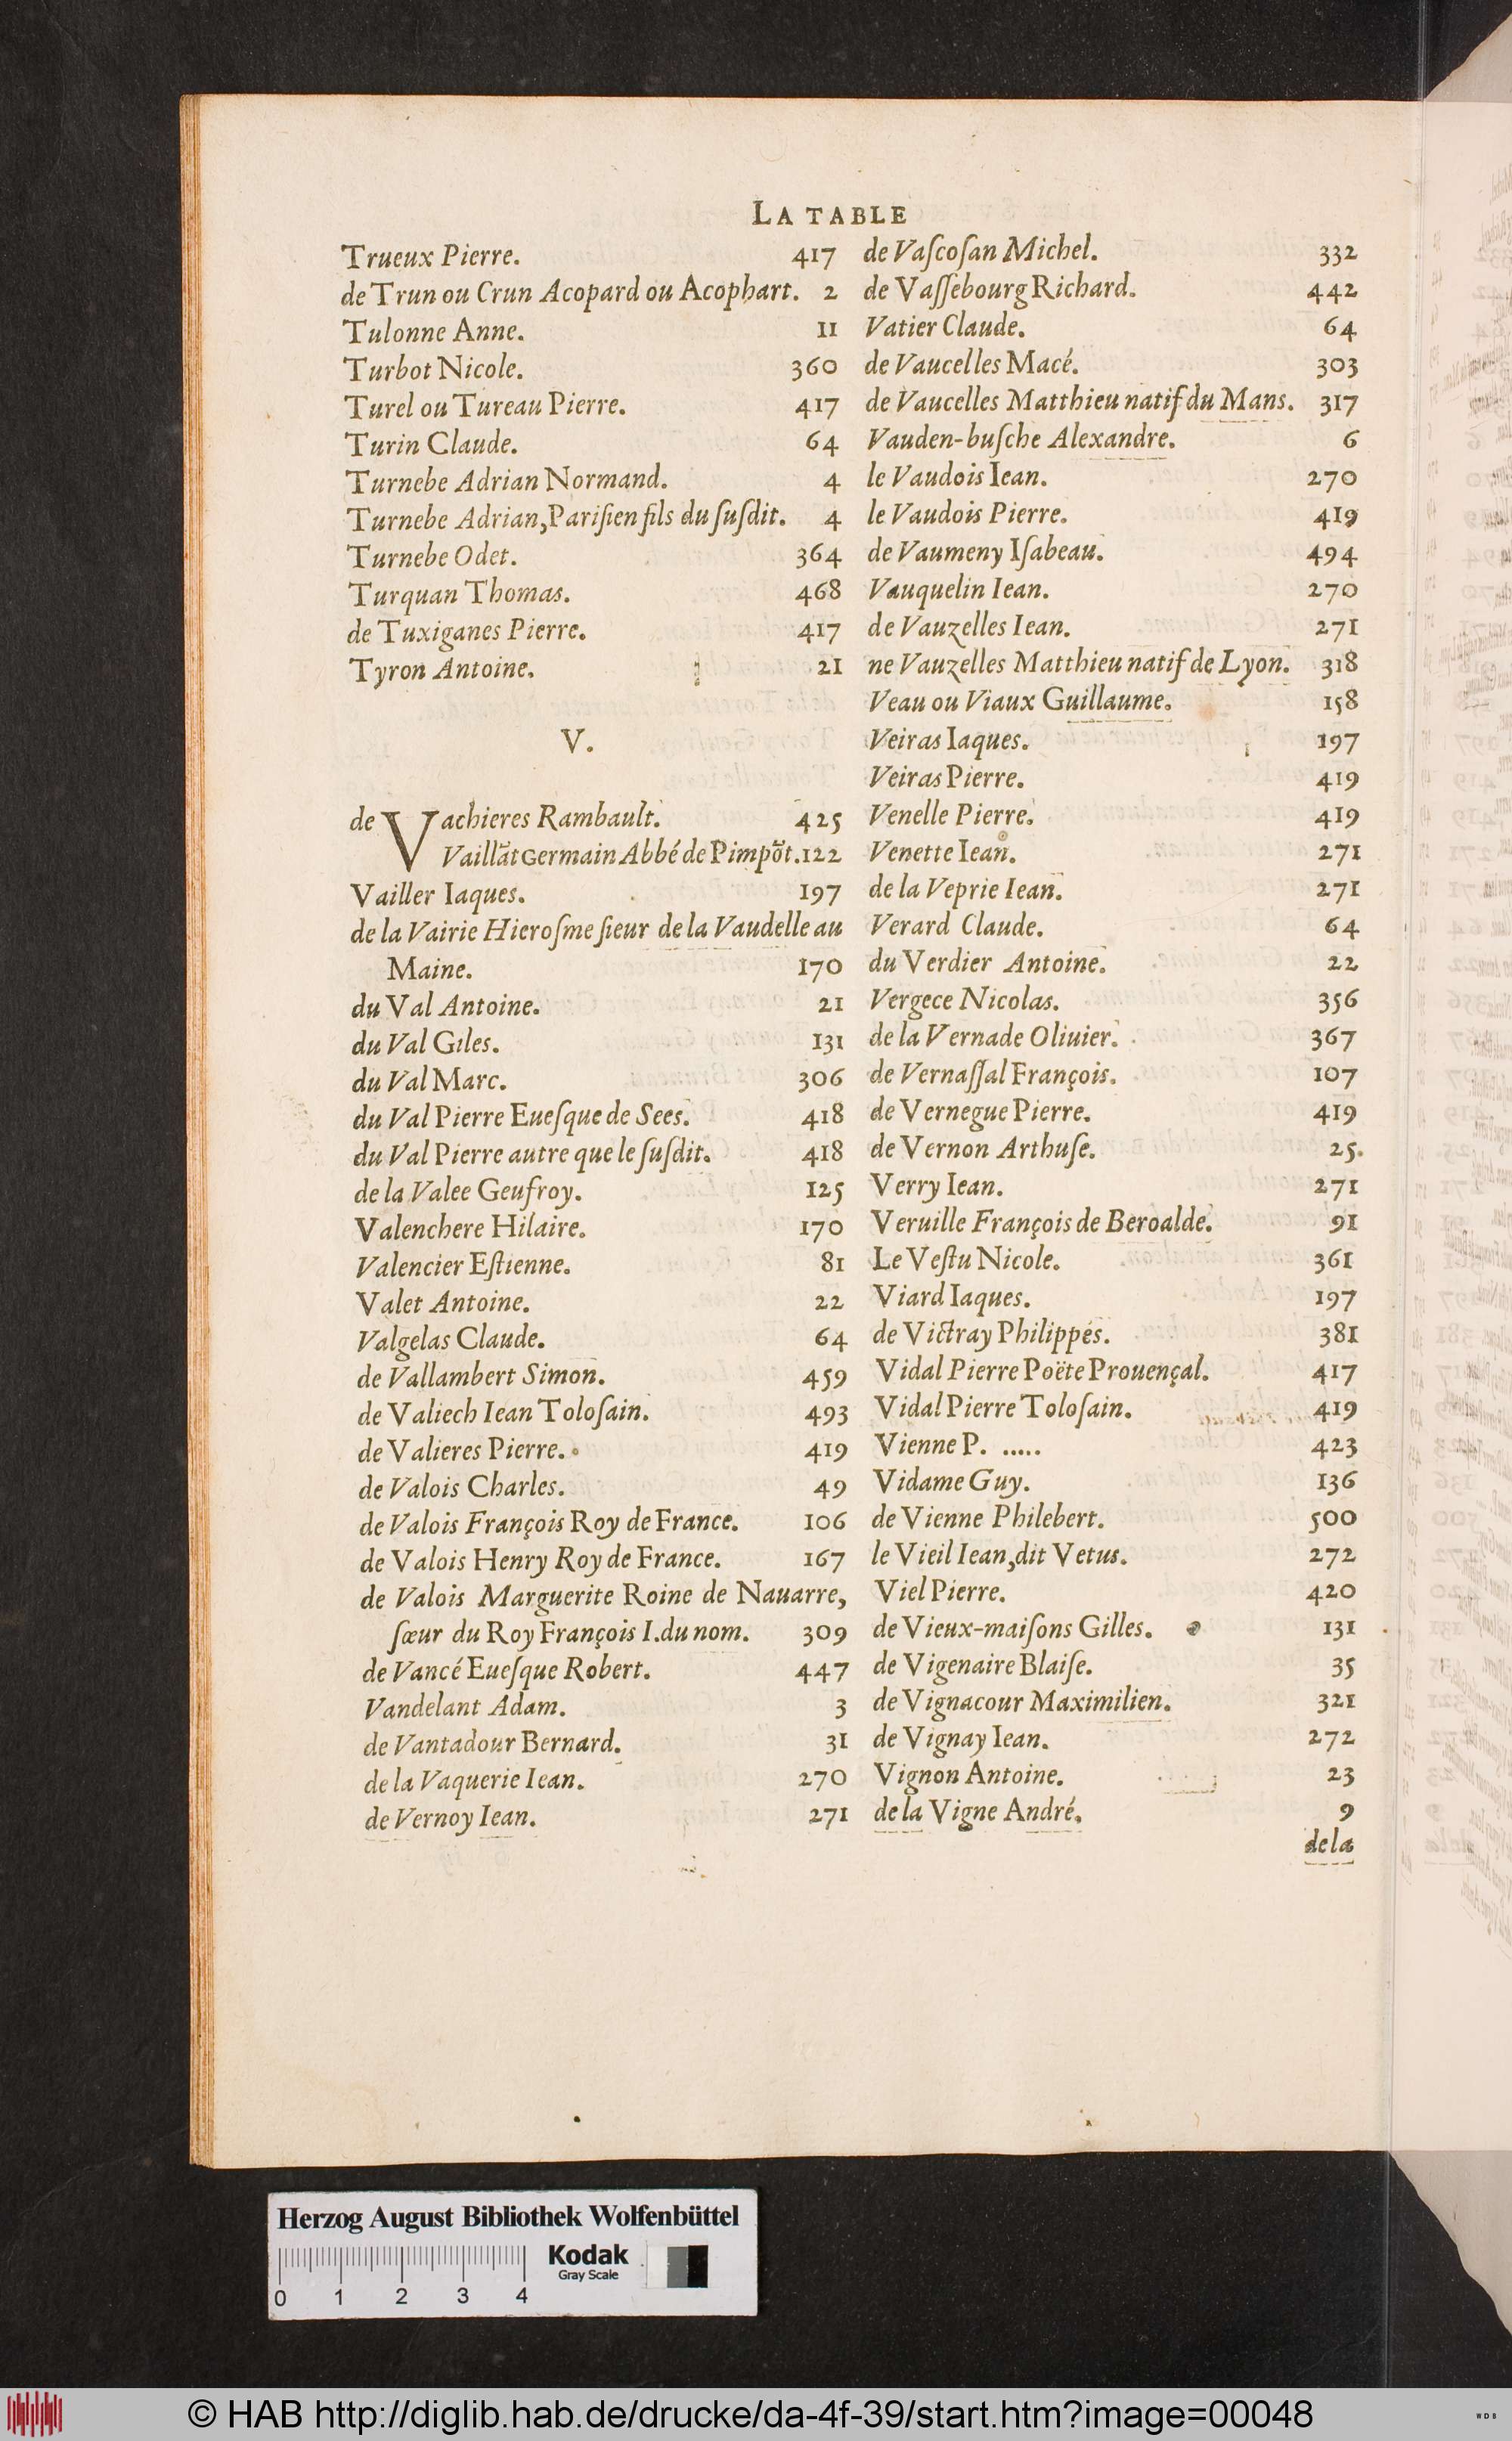 LA TABLE
Trueux Pierre. 417
de Trun ou Crun Acopard ou Acophart. 2
Tulonne Anne. 11
Turbot Nicole. 360
Turel ou Tureau Pierre. 417
Turin Claude. 64
Turnebe Adrian Normand. 4
Turnebe Adrian, Pariſien fils du ſuſdit. 4
Turnebe Odet. 364
Turquan Thomas. 468
de Tuxiganes Pierre. 417
Tyron Antoine. 21
V.
de Vachieres Rambault. 425
Vaillãt Germain Abbé de Pimpõt. 122
Vailler Iaques. 197
de la Vairie Hieroſme ſieur de la Vaudelle au
Maine. 170
du Val Antoine. 21
du Val Giles. 131
du Val Marc. 306
du Val Pierre Eueſque de Sees. 418
du Val Pierre autre que le ſuſdit. 418
de la Valee Geufroy. 125
Valenchere Hilaire. 170
Valencier Eſtienne. 81
Valet Antoine. 22
Valgelas Claude. 64
de Vallambert Simon. 459
de Valiech Iean Toloſain. 493
de Valieres Pierre. 419
de Valois Charles. 49
de Valois François Roy de France. 106
de Valois Henry Roy de France. 167
de Valois Marguerite Roine de Nauarre,
ſœur du Roy François I. du nom. 309
de Vancé Eueſque Robert. 447
Vandelant Adam. 3
de Vantadour Bernard. 31
de la Vaquerie Iean. 270
de Vernoy Iean. 271
de Vaſcoſan Michel. 332
de Vaſſebourg Richard. 442
Vatier Claude. 64
de Vaucelles Macé. 303
de Vaucelles Matthieu natif du Mans. 317
Vauden-buſche Alexandre. 6
le Vaudois Iean. 270
le Vaudois Pierre. 419
de Vaumeny Iſabeau. 494
Vauquelin Iean. 270
de Vauzelles Iean. 271
ne Vauzelles Matthieu natif de Lyon. 318
Veau ou Viaux Guillaume. 158
Veiras Iaques. 197
Veiras Pierre. 419
Venelle Pierre. 419
Venette Iean. 271
de la Veprie Iean. 271
Verard Claude. 64
du Verdier Antoine. 22
Vergece Nicolas. 356
de la Vernade Oliuier. 367
de Vernaſſal François. 107
de Vernegue Pierre. 419
de Vernon Arthuſe. 25.
Verry Iean. 271
Veruille François de Beroalde. 91
Le Veſtu Nicole. 361
Viard Iaques. 197
de Victray Philippes. 381
Vidal Pierre Poëte Prouençal. 417
Vidal Pierre Toloſain. 419
Vienne P. ..... 423
Vidame Guy. 136
de Vienne Philebert. 500
le Vieil Iean, dit Vetus. 272
Viel Pierre. 420
de Vieux-maiſons Gilles. 131
de Vigenaire Blaiſe. 35
de Vignacour Maximilien. 321
de Vignay Iean. 272
Vignon Antoine. 23
de la Vigne André. 9
de la
Herzog August Bibliothek Wolfenbüttel
Kodak
Gray Scale
0 1 2 3 4
© HAB http://diglib.hab.de/drucke/da-4f-39/start.htm?image=00048
WDB